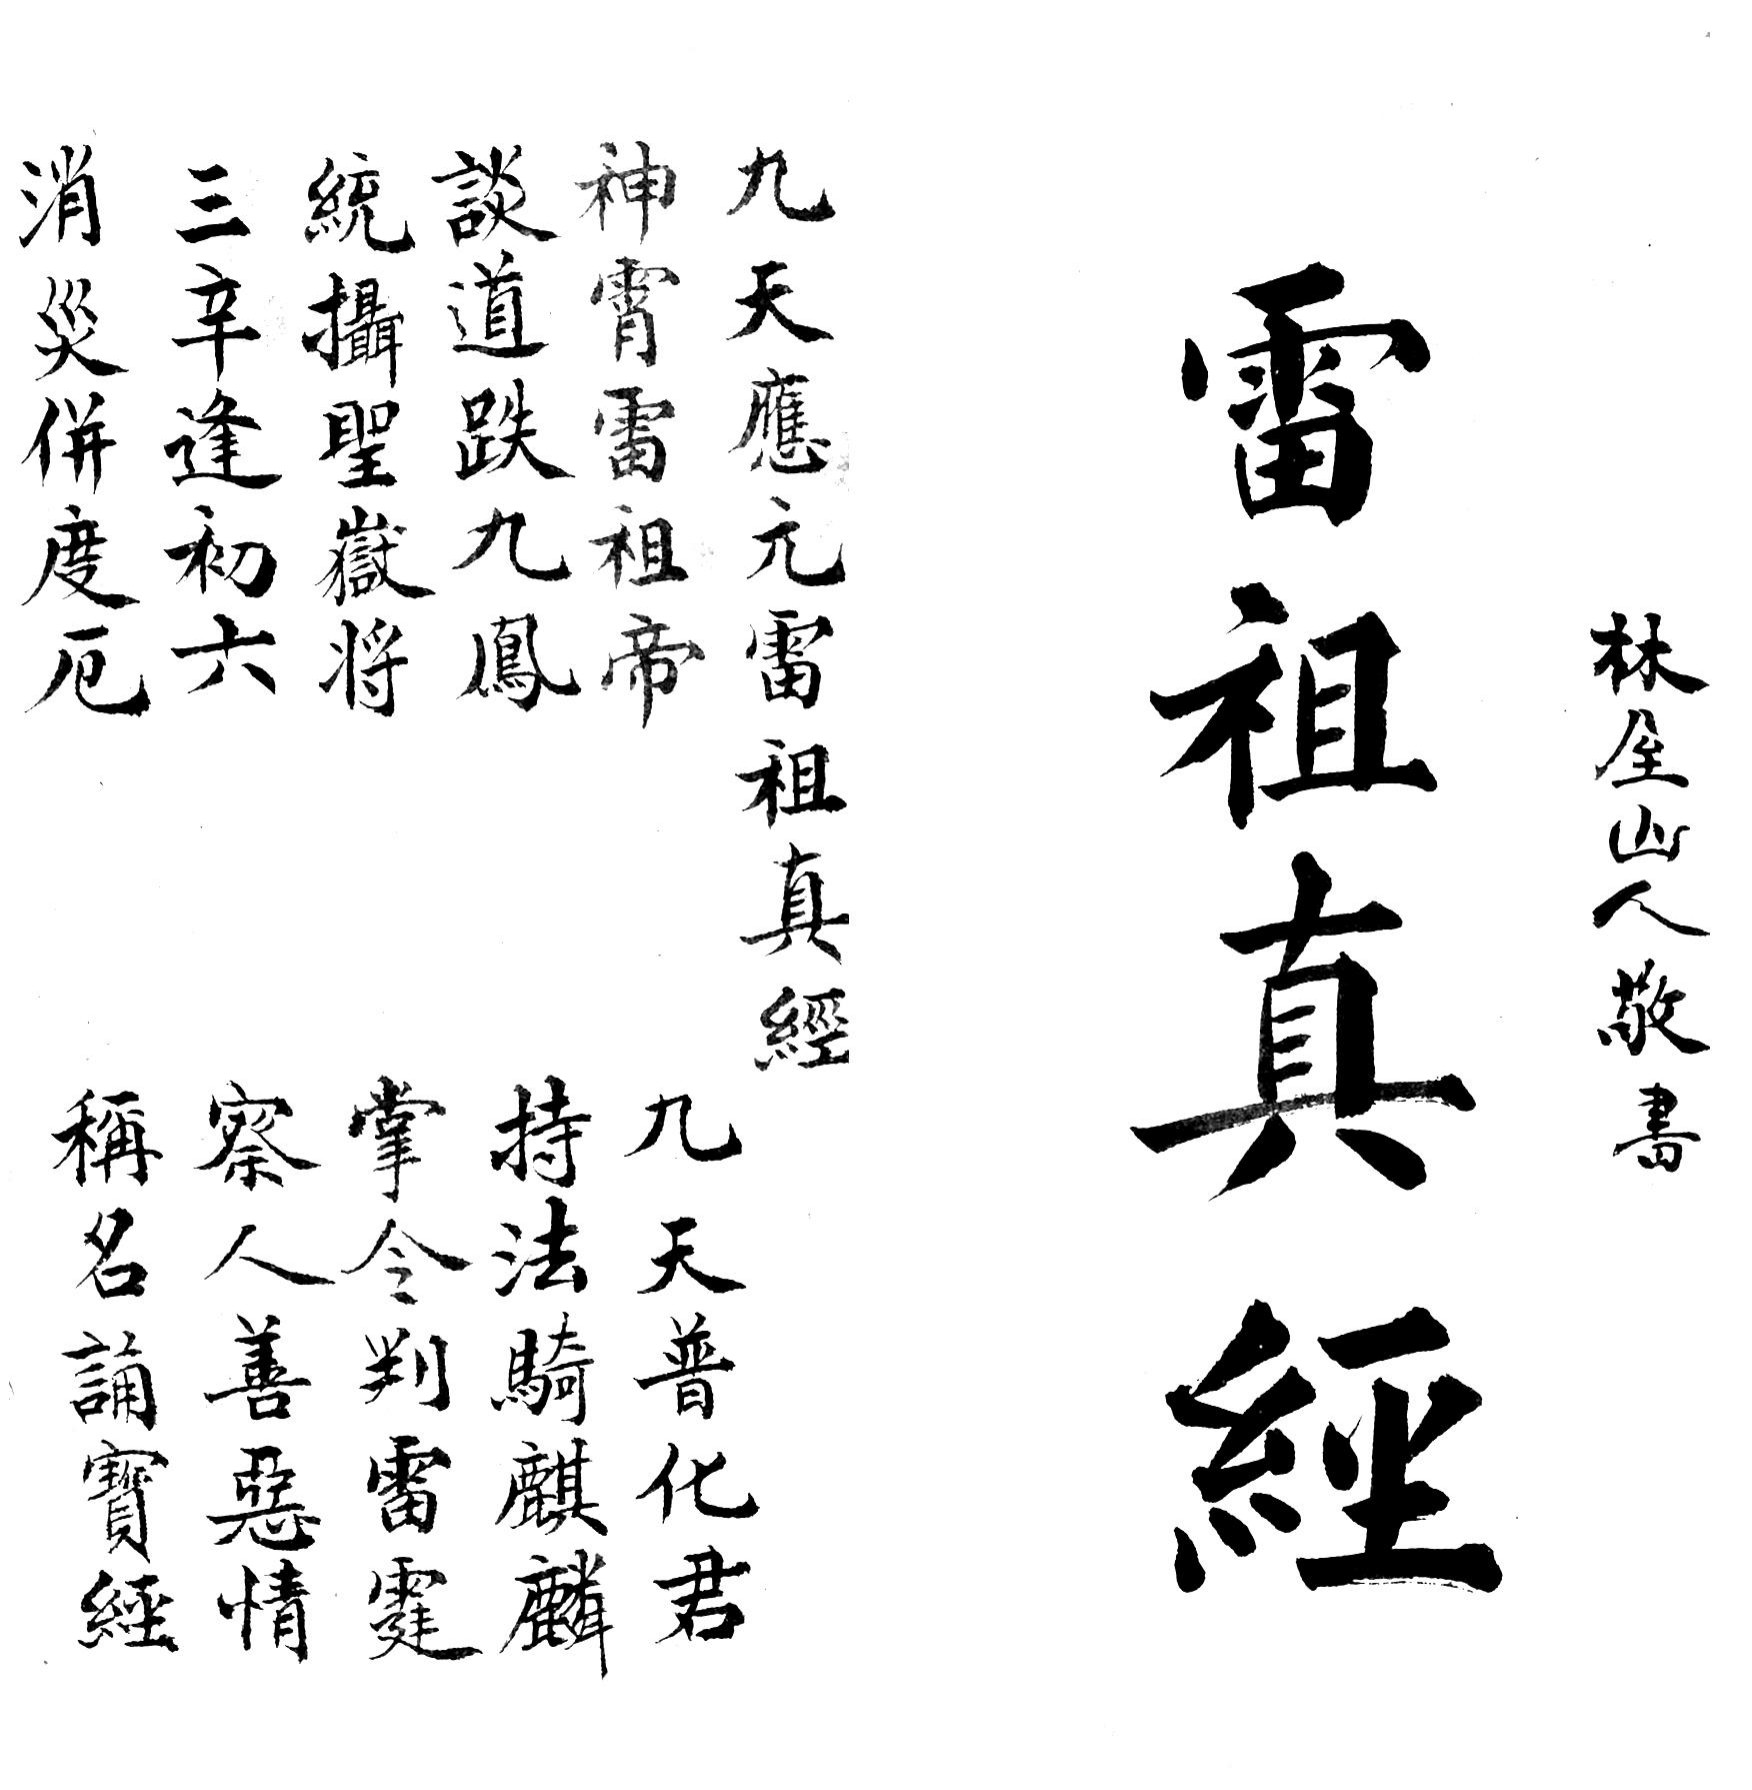 林屋山人敬書
雷祖真經
九天應元雷祖真經
神霄雷祖帝
九天普化君
談道趺九鳳
持法騎麒麟
統攝聖嶽將
掌令判雷霆
三辛逢初六
察人善惡情
消災併度厄
稱名誦寶經